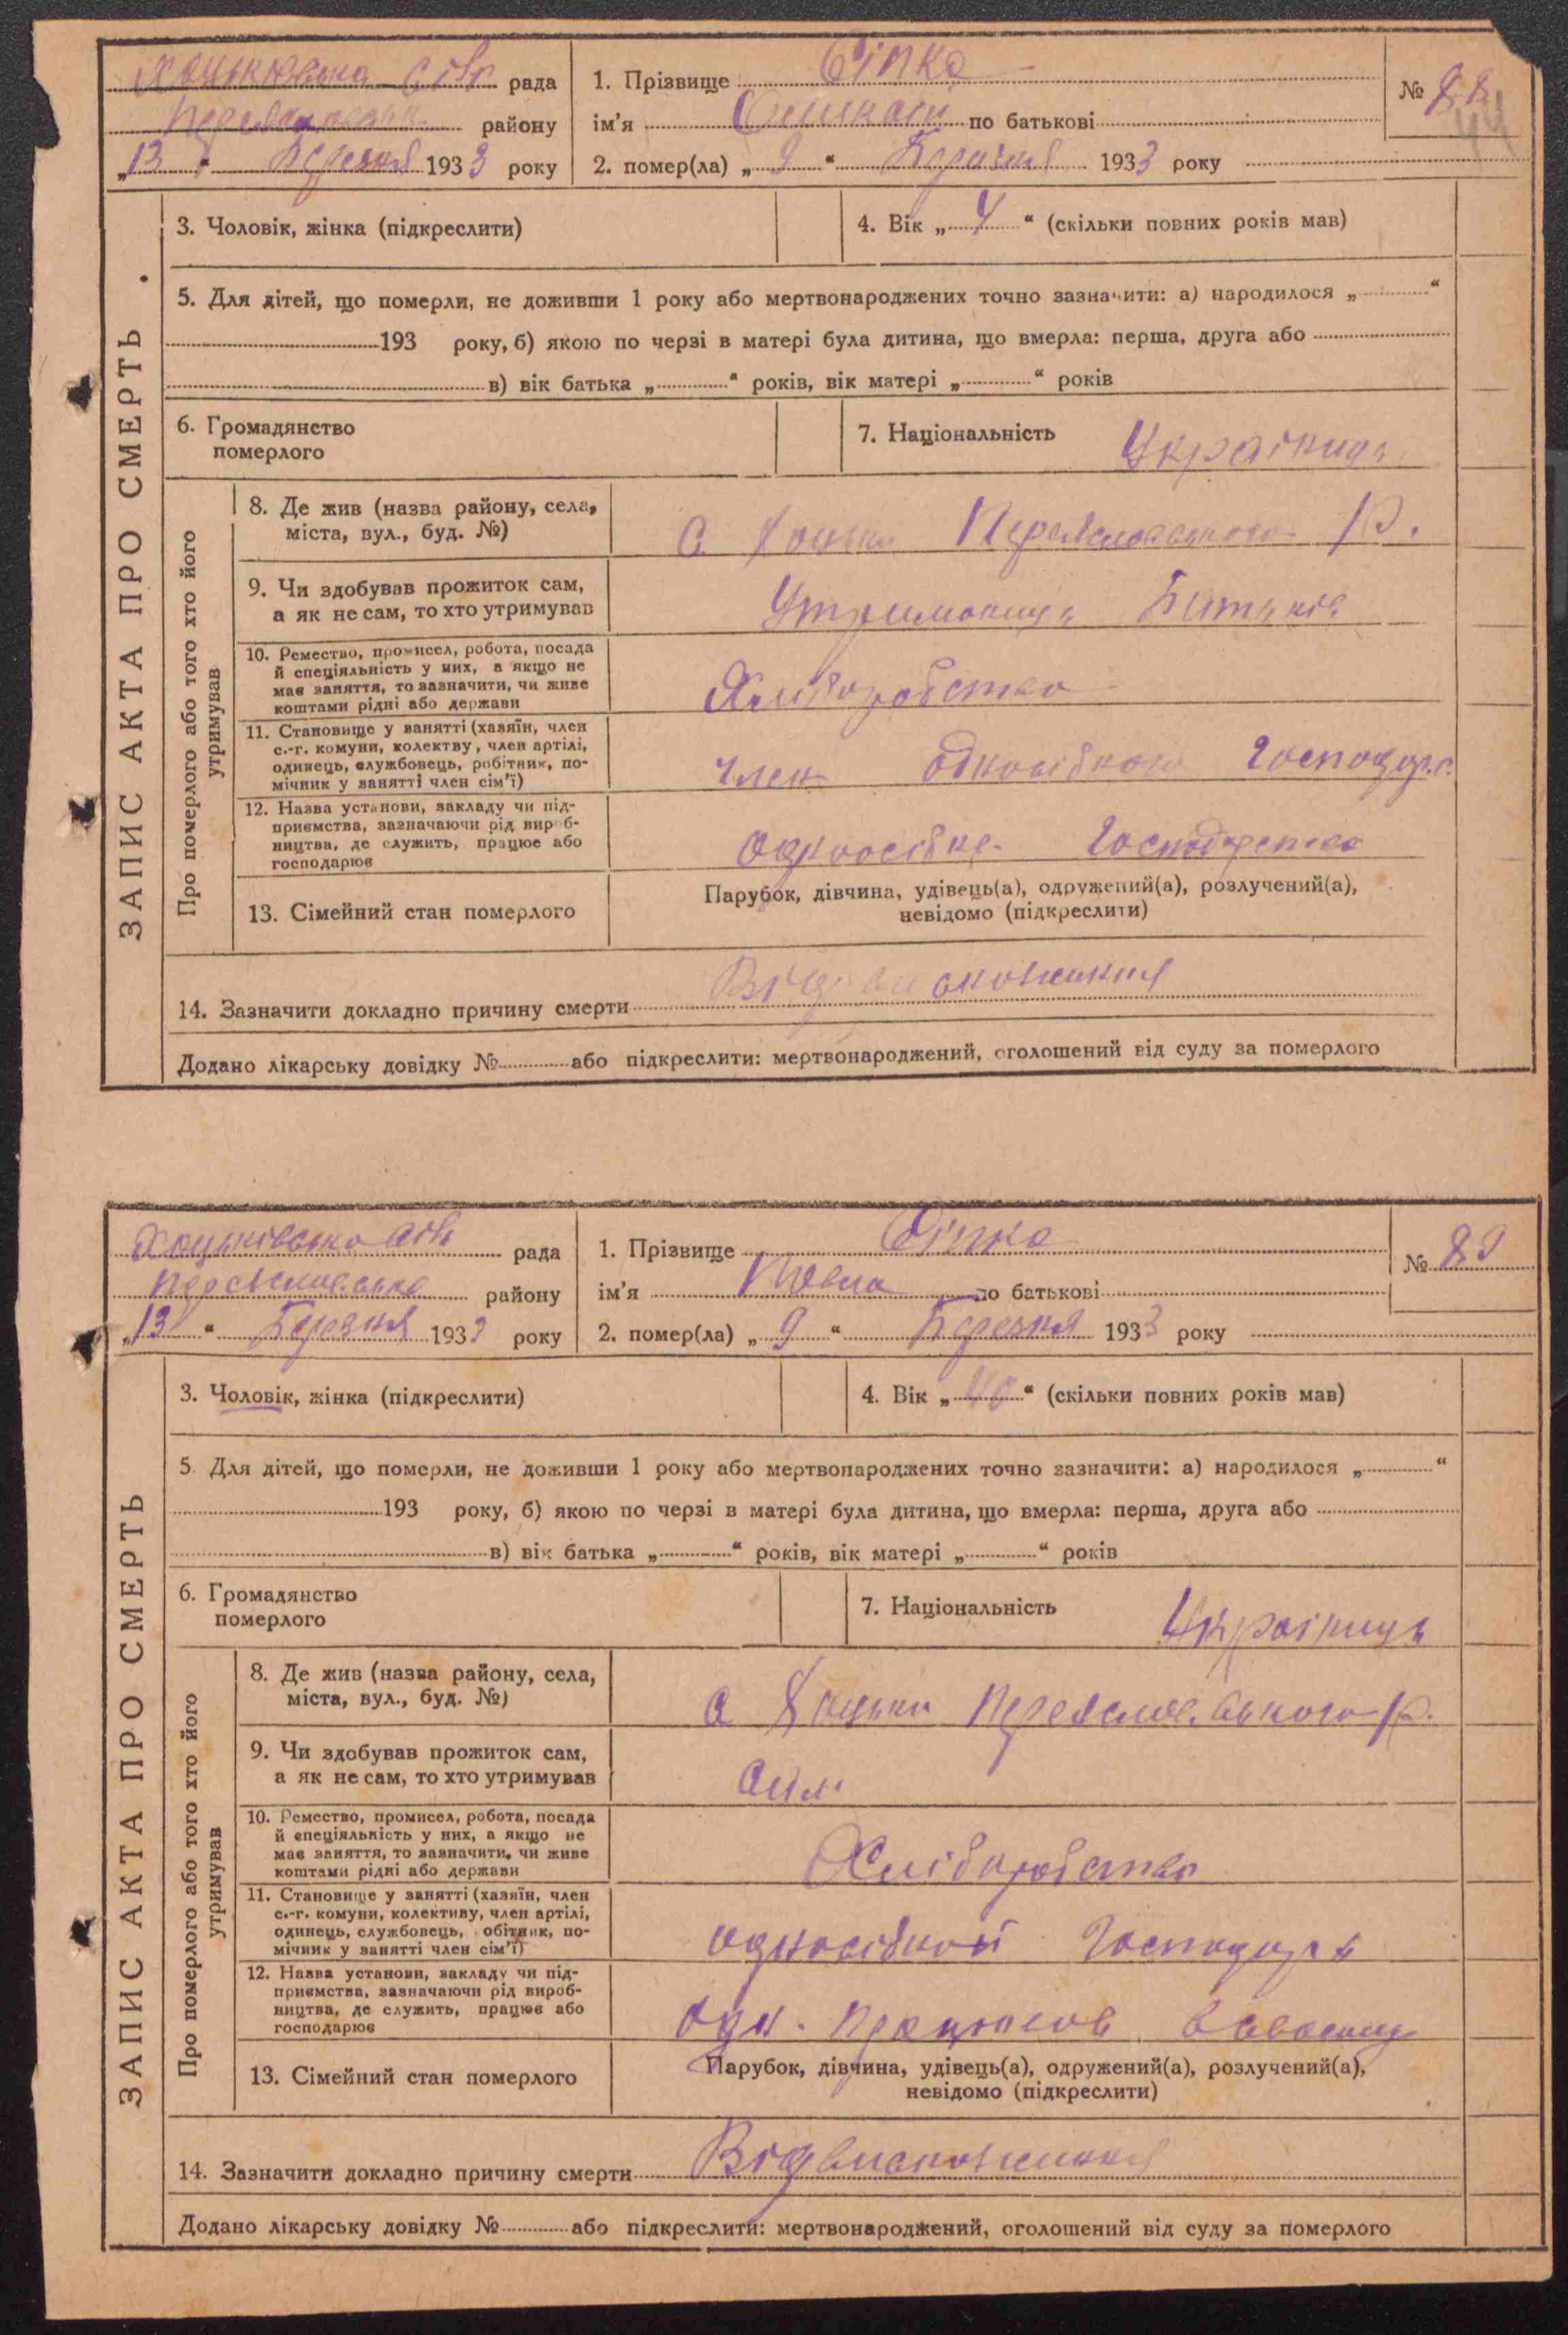 Хоцьківська сіль рада
1. Прізвище Сіпко
№ 88
44
Переяславська району
ім'я по батькові
„13" Березня 1933 року
2. помер(ла) „9" Березня 1933 року
ЗАПИС АКТА ПРО СМЕРТЬ.
3. Чоловік, жінка (підкреслити)
4. Вік „4" (скільки повних років мав)
5. Для дітей, що померли, не доживши 1 року або мертвонароджених точно зазначити: а) народилося „ "
193 року, б) якою по черзі в матері була дитина, що вмерла: перша, друга або
в) вік батька „ " років, вік матері „ " років
6. Громадянство
померлого
7. Національність Українць
Про померлого або того хто його
утримував
8. Де жив (назва району, села,
міста, вул., буд. №)
С Хоцьки Переяславського Р.
9. Чи здобував прожиток сам,
а як не сам, то хто утримував
Утриманець Батьків
10. Ремество, промисел, робота, посада
й спеціяльність у них, а якщо не
має заняття, то зазначити, чи живе
коштами рідні або держави
Хліборобство
11. Становище у занятті (хазяїн, член
с.-г. комуни, колектву, член артілі,
одинець, службовець, робітник, по-
мічник у занятті член сім'ї)
член одноосібного Господар.
12. Назва установи, закладу чи під-
приємства, зазначаючи рід вироб-
ництва, де служить, працює або
господарює
одноосібне Господарство
13. Сімейний стан померлого
Парубок, дівчина, удівець(а), одружений(а), розлучений(а),
невідомо (підкреслити)
14. Зазначити докладно причину смерти Від виснаження
Додано лікарську довідку № або підкреслити: мертвонароджений, оголошений від суду за померлого
Хоцьківська сіль рада
1. Прізвище Сіпко
№ 89
Переяславська району
ім'я Павло по батькові
„13" Березня 1933 року
2. помер(ла) „9" Березня 1933 року
ЗАПИС АКТА ПРО СМЕРТЬ
3. Чоловік, жінка (підкреслити)
4. Вік „ " (скільки повних років мав)
5 Для дітей, що померли, не доживши 1 року або мертвонароджених точно зазначити: а) народилося „ "
193 року, б) якою по черзі в матері була дитина, що вмерла: перша, друга або
в) вік батька „ " років, вік матері „ " років
6. Громадянство
померлого
7. Національність Українць
Про померлого або того хто його
утримував
8. Де жив (назва району, села,
міста, вул., буд. №)
С Хоцьки Переяславського Р.
9. Чи здобував прожиток сам,
а як не сам, то хто утримував
Сам
10. Ремество, промисел, робота, посада
й спеціяльність у них, а якщо не
має заняття, то зазначити, чи живе
коштами рідні або держави
Хліборобство
11. Становище у занятті (хазяїн, член
с.-г. комуни, колективу, член артілі,
одинець, службовець, обітник, по-
мічник у занятті член сім'ї)
одноосібний Господарь
12. Назва установи, закладу чи під-
приємства, зазначаючи рід вироб-
ництва, де служить, працює або
господарює
одн. працював
13. Сімейний стан померлого
Парубок, дівчина, удівець(а), одружений(а), розлучений(а),
невідомо (підкреслити)
14. Зазначити докладно причину смерти Від виснаження
Додано лікарську довідку № або підкреслити: мертвонароджений, оголошений від суду за померлого